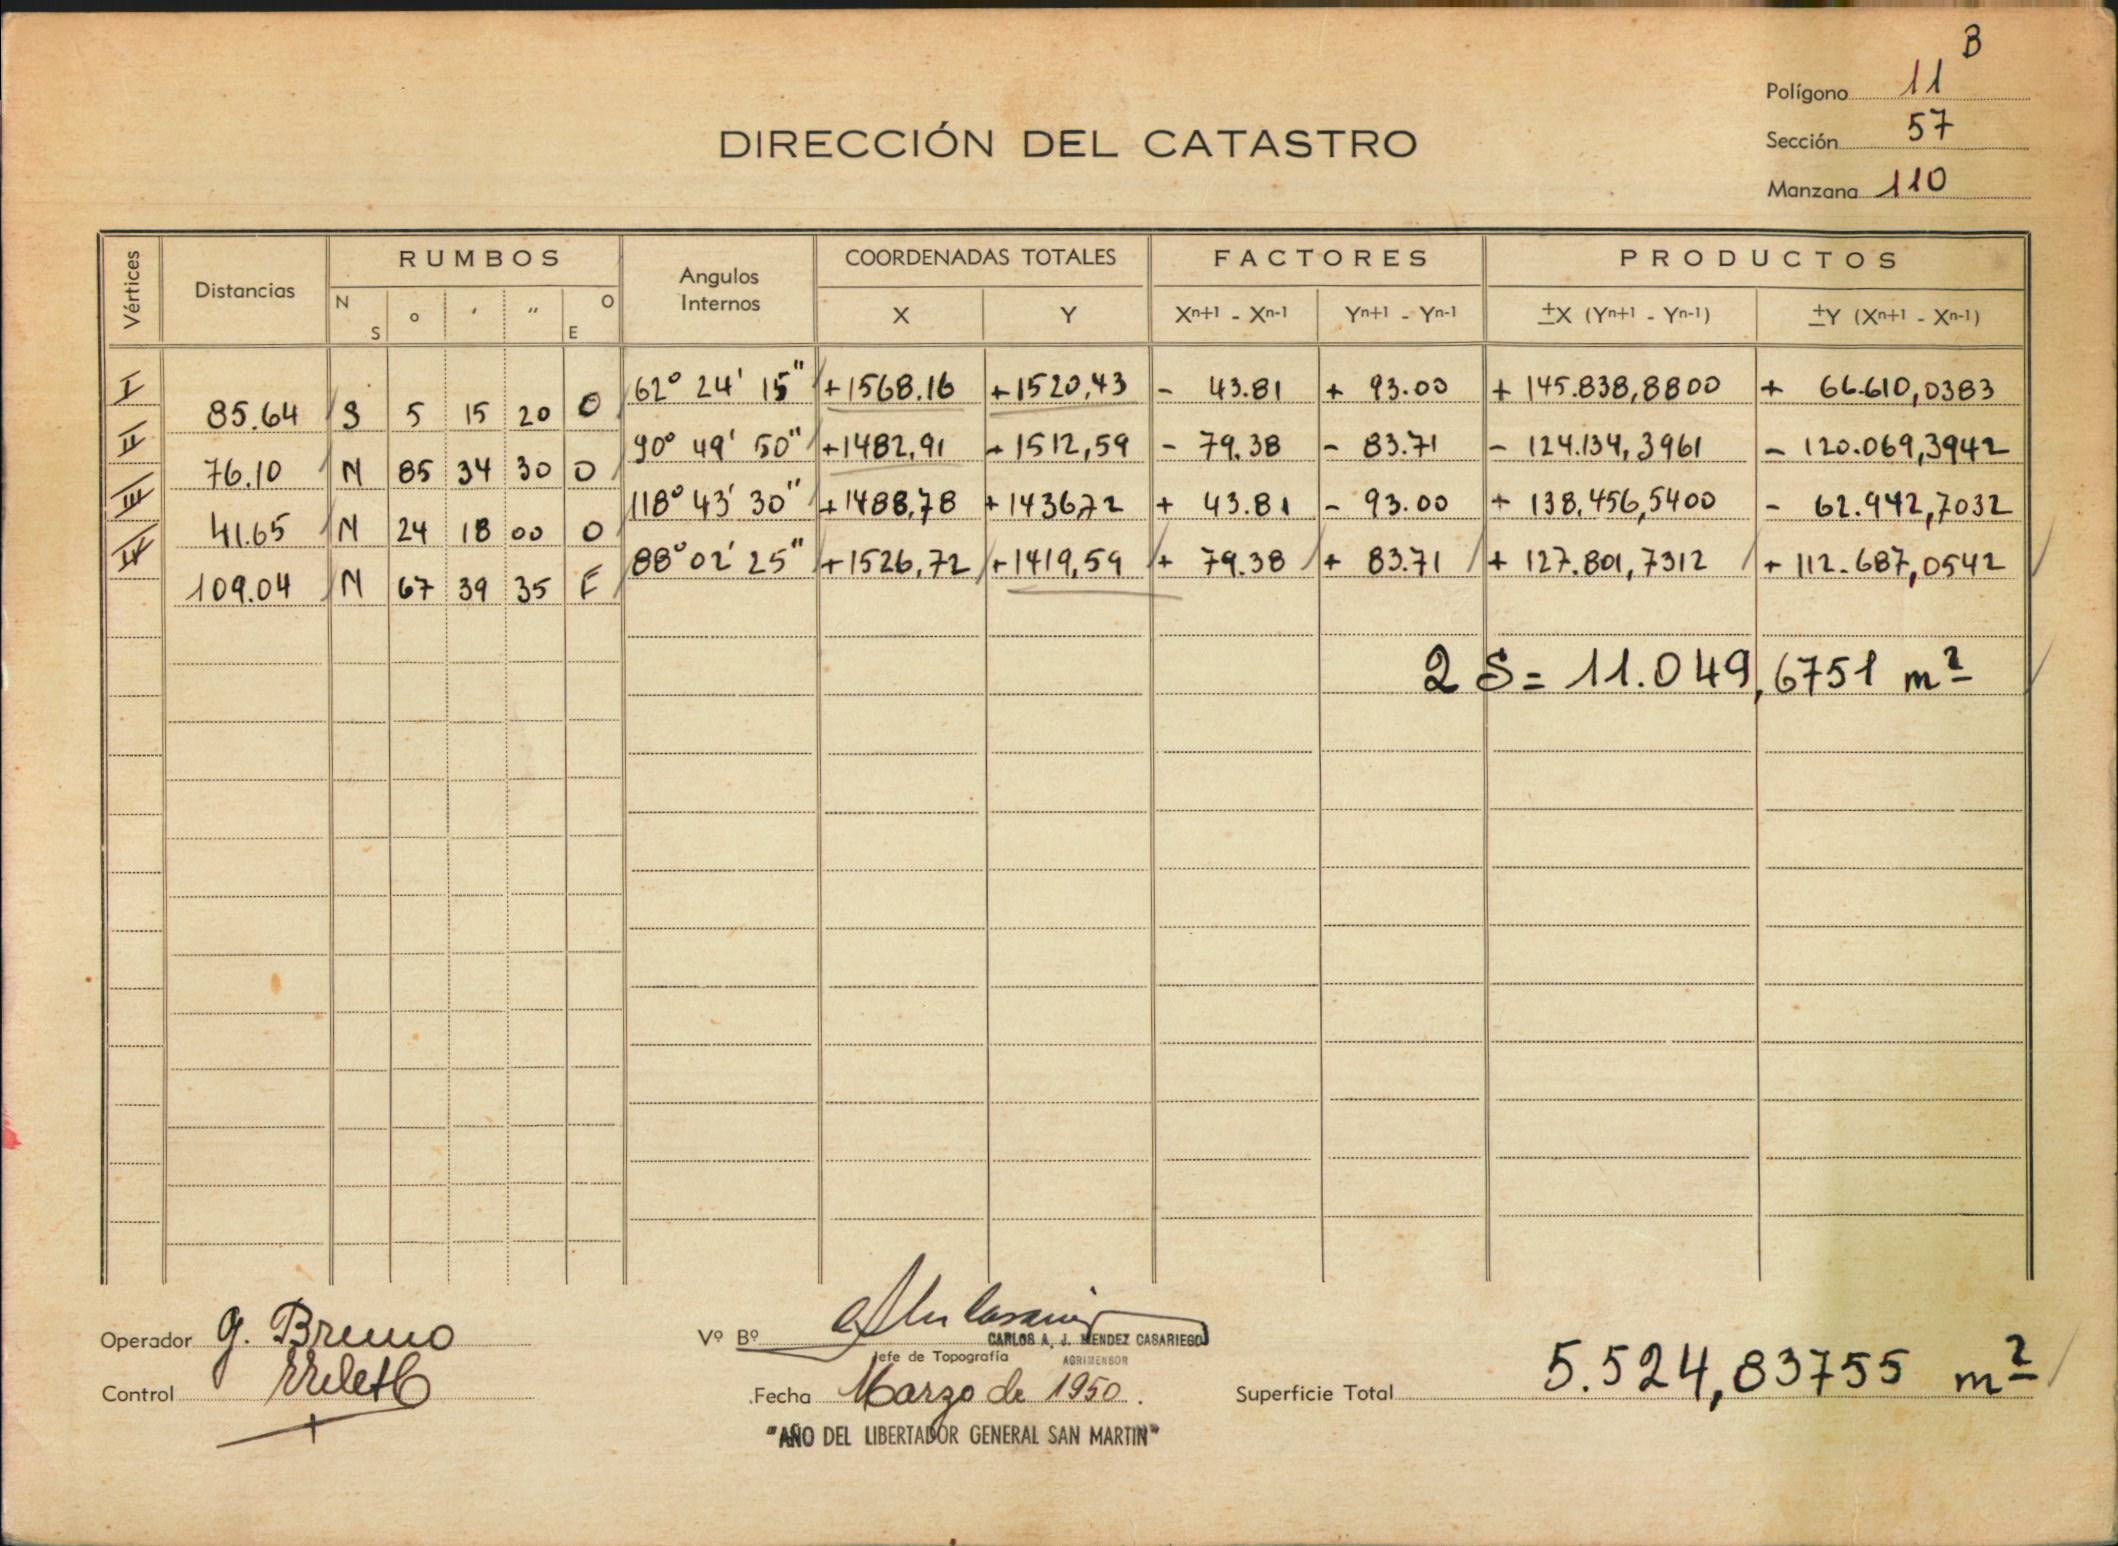 B
Polígono 11
DIRECCIÓN DEL CATASTRO
Sección 57
Manzana 110
Vértices Distancias RUMBOS Angulos Internos COORDENADAS TOTALES FACTORES PRODUCTOS
N S o ′ ″ O E X Y Xn+1 - Xn-1 Yn+1 - Yn-1 ±X (Yn+1 - Yn-1) ±Y (Xn+1 - Xn-1)
I 62° 24' 15" +1568.16 +1520,43 - 43.81 + 93.00 + 145.838,8800 + 66.610,0383
85.64 S 5 15 20 O
II 90° 49' 50" +1482,91 +1512,59 - 79.38 - 83.71 - 124.134,3961 - 120.069,3942
76.10 N 85 34 30 O
III 118° 43' 30" +1488,78 +1436,72 + 43.81 - 93.00 + 138.456,5400 - 62.942,7032
41.65 N 24 18 00 O
IV 88° 02' 25" +1526,72 +1419,59 + 79.38 + 83.71 + 127.801,7312 + 112.687,0542
109.04 N 67 39 35 E
2 S = 11.049,6751 m2
Operador G. Bruno
Vº Bº
CARLOS A. J. MENDEZ CASARIEGO
Jefe de Topografía AGRIMENSOR
Control
Fecha Marzo de 1950.
Superficie Total 5.524,83755 m2
"AÑO DEL LIBERTADOR GENERAL SAN MARTIN"